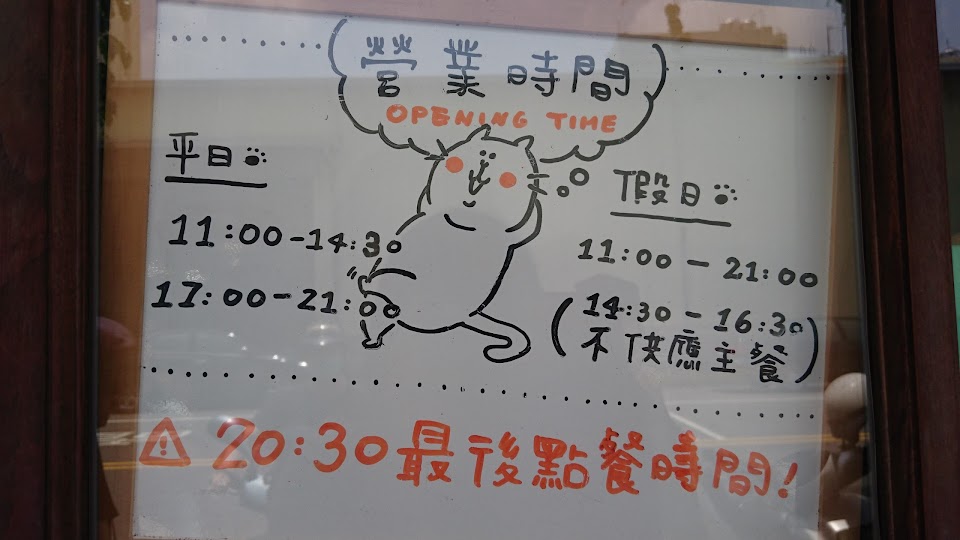 營業時間
OPENING TIME
平日
11:00-14:30
17:00-21:00
假日
11:00-21:00
(14:30-16:30
不供應主餐)
20:30最後點餐時間!